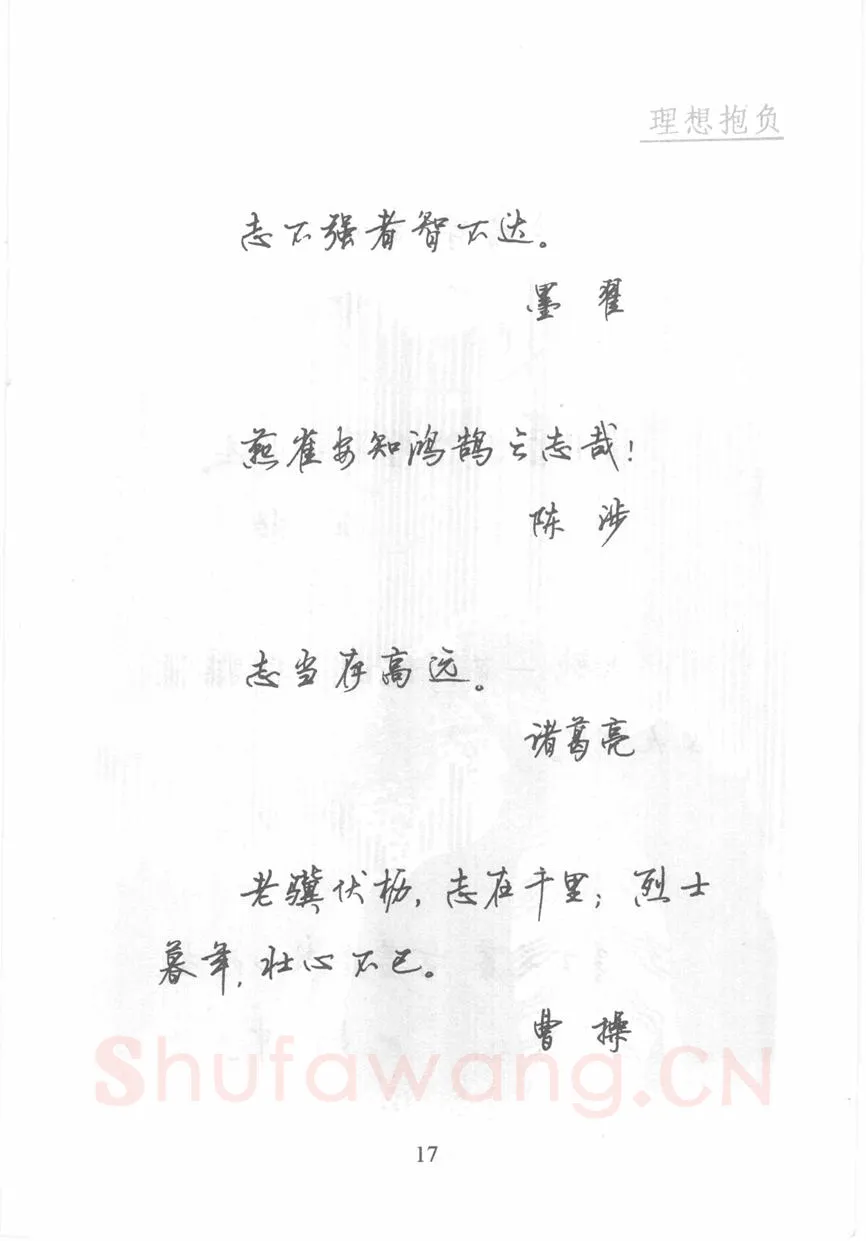 理想抱负
志不强者智不达。
墨 翟
燕雀安知鸿鹄之志哉！
陈 涉
志当存高远。
诸葛亮
老骥伏枥，志在千里；烈士
暮年，壮心不已。
曹 操
Shufawang.CN
17